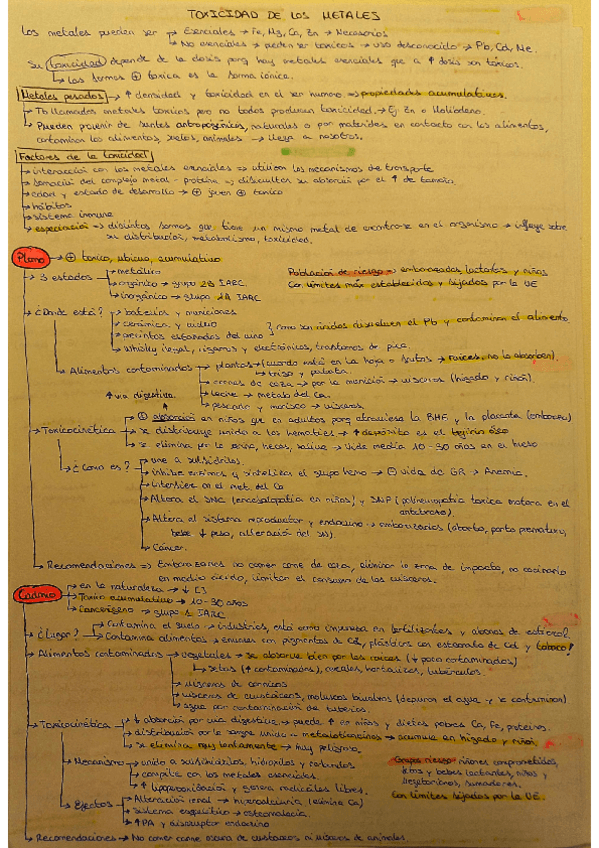 TOXICIDAD DE LOS METALES
Los metales pueden ser → Esenciales → Fe, Mg, Ca, Zn → Necesarios
→ No esenciales → pueden ser tóxicos → uso desconocido → Pb, Cd, Me.
Su toxicidad depende de la dosis porq hay metales esenciales que a ↑ dosis son tóxicos.
→ Las formas ⊕ tóxica es la forma iónica.
Metales pesados → ↑ densidad y toxicidad en el ser humano → propiedades acumulativas.
→ Tb llamados metales tóxicos pero no todos producen toxicidad. → Ej Zn o Molibdeno.
→ Pueden provenir de fuentes antropogénicas, naturales o por materiales en contacto con los alimentos,
contamina los alimentos, suelos, animales → llega a nosotros.
Factores de la toxicidad
→ interacción con los metales esenciales → utilizan los mecanismos de transporte
→ formación del complejo metal - proteína → dificultan su absorción por el ↑ de tamaño.
→ edad y estado de desarrollo → ⊕ joven ⊕ tóxico
→ hábitos
→ sistema inmune
→ especiación → distintas formas que tiene un mismo metal de encontrarse en el organismo → influye sobre
su distribución, metabolismo, toxicidad.
Plomo → ⊕ tóxico, ubicuo, acumulativo
→ 3 estados → metálico
→ orgánico → grupo 2B IARC.
→ inorgánico → grupo 2A IARC
Población de riesgo → embarazadas, lactantes y niños
Con límites más establecidos y fijados por la UE
→ ¿Dónde está? → baterías y municiones
→ cerámica, y vidrio
→ utensilios estañados del vino } como son ácidos disuelven el Pb y contaminan el alimento.
→ whisky ilegal, cigarros y electrónicos, trastornos de pica.
Alimentos contaminados → plantas → (cuando está en la hoja o frutos → raíces, no la absorben).
→ trigo y patata.
→ carnes de caza → por la munición → vísceras (hígado y riñón).
→ leche → metab del Ca.
→ pescado y marisco → vísceras
↑ via digestiva.
→ Toxicocinética → ⊕ absorción en niños que en adultos porq atraviesa la BHE y la placenta
→ se distribuye unido a los hematíes → ↑ depósito es el tejido óseo
→ se elimina por la orina, heces, saliva → vida media 10-30 años en el hueso
→ ¿Cómo es? → une a sulfidrilos.
→ Inhibe enzimas y sintetiza el grupo hemo → ⊖ vida de GR → Anemia.
→ Interfiere en el met. del Ca
→ Altera el SNC (encefalopatía en niños) y SNP (polineuropatía tóxica motora en el
antebrazo).
→ Altera el sistema reproductor y endocrino → embarazadas (aborto, parto prematuro,
bebé ↓ peso, alteración del SN).
→ Cáncer.
→ Recomendaciones → Embarazadas no comer carne de caza, eliminar la zona de impacto, no cocinarla
en medio ácido, limitar el consumo de las vísceras.
Cadmio → en la naturaleza → ↓
→ Tóxico acumulativo → 10-30 años
→ Cancerígeno → grupo 1 IARC
→ ¿Lugar? → Contamina el suelo → industrias, está como impureza en fertilizantes y abonos de estiércol?
→ Contamina alimentos → envases con pigmentos de Cd, plásticos con estearato de Cd y tabaco!
→ Alimentos contaminados → vegetales → se absorbe bien por las raíces (↓ poco contaminados)
→ setas (↑ contaminadas), cereales, hortalizas, tubérculos.
→ vísceras de cárnicos
→ vísceras de crustáceos, moluscos bivalvos (depuran el agua → se contaminan)
→ agua por contaminación de tuberías.
→ Toxicocinética → ↓ absorción por via digestiva → puede ↑ en niños y dietas pobres Ca, Fe, proteínas.
→ distribución por la sangre unido → metalotioneínas → acumula en hígado y riñón.
→ se elimina muy lentamente → muy peligroso.
→ Mecanismo → unido a sulfhidrilos, hidroxilos y
→ compite con los metales esenciales.
→ ↑ lipoperoxidación y genera radicales libres.
Grupo riesgo → riñones comprometidos,
fetos y bebés lactantes, niños y
vegetarianos, fumadores.
Con límites fijados por la UE.
→ Efectos → Alteración renal → hipercalciuria (elimina Ca)
→ sistema esquelético → osteomalacia.
→ ↑PA y disruptor endocrino
→ Recomendaciones → No comer carne oscura de crustáceos ni vísceras de animales.